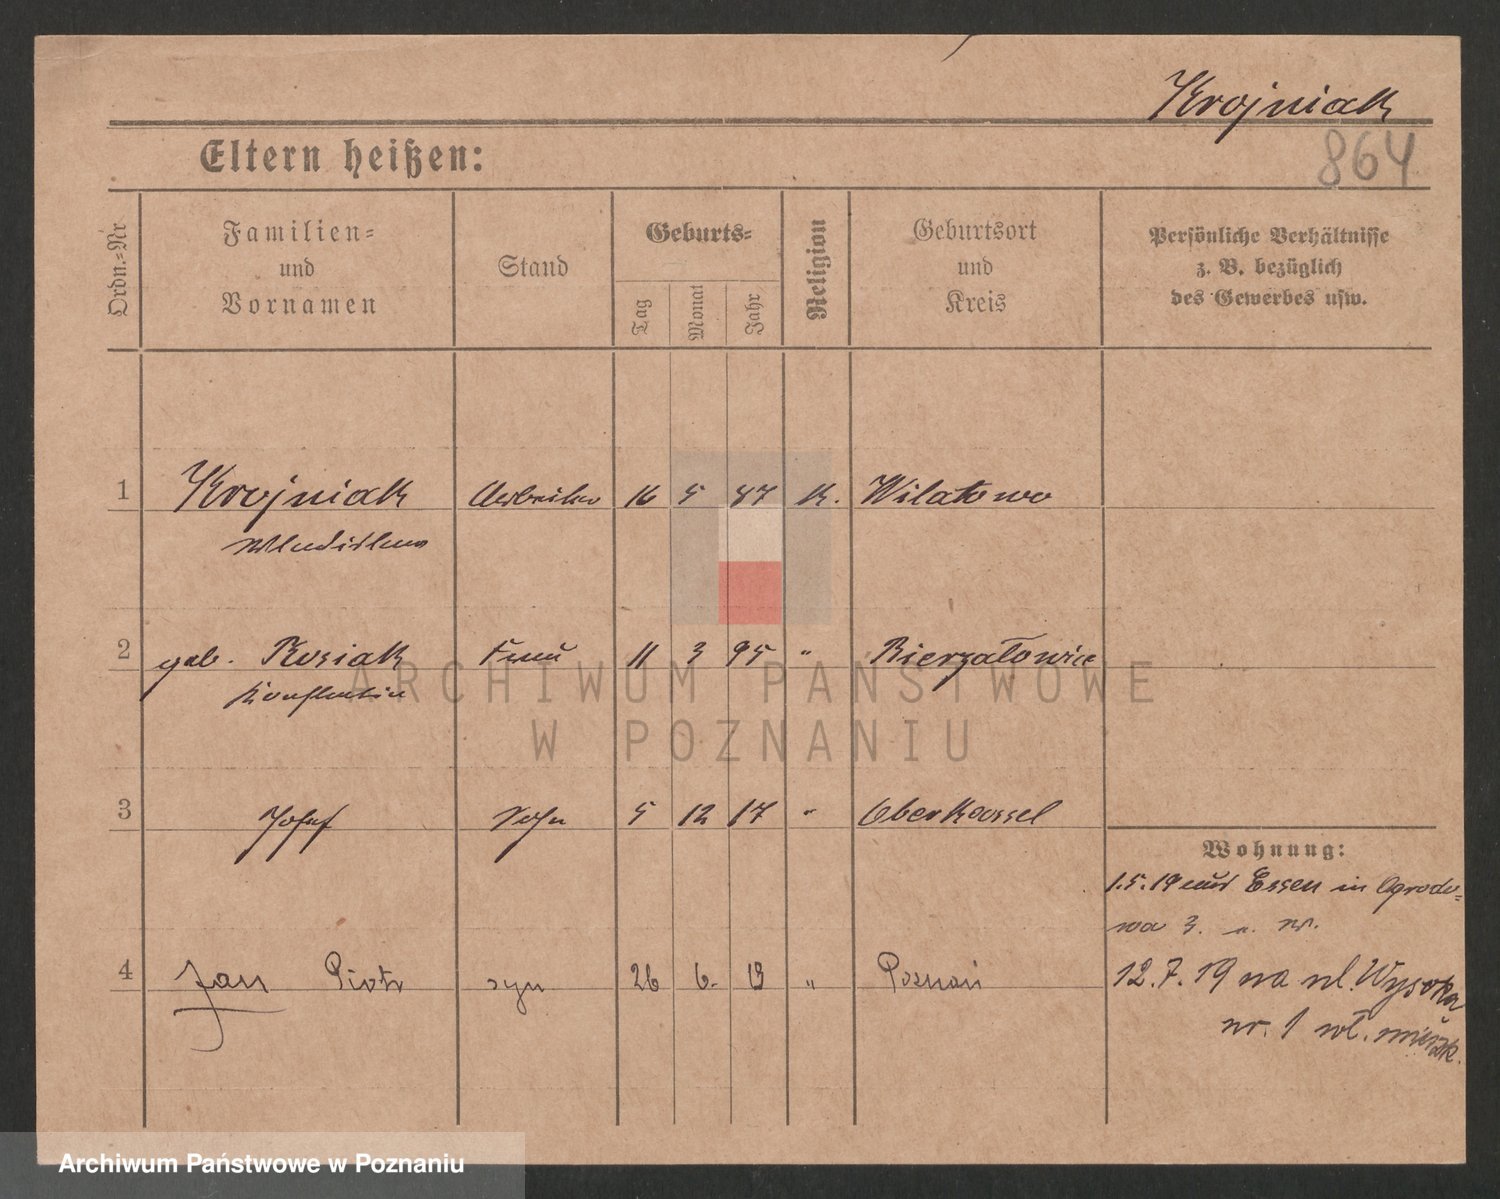 Krojniak
864
Eltern heißen:
Ordn.=Nr
Familien=
und
Vornamen
Stand
Geburts=
Tag
Monat
Jahr
Religion
Geburtsort
und
Kreis
Persönliche Verhältnisse
z. B. bezüglich
des Gewerbes usw.
1 Krojniak Arbeiter 16 5 87 K. Wilatowo
Wladislaus
2 geb. Kosiak Frau 11 3 95 "
Konstantia
3 Josef Sohn 5 12 17 " Oberkassel
Wohnung:
1.5.19 aus Essen in Ogrodo=
wa 3. W.
4 Jan Piotr syn 26 6. 19 " Poznań
12.7.19 na ul. Wysoka
nr. 1 wł. mieszk.
ARCHIWUM PAŃSTWOWE
W POZNANIU
Archiwum Państwowe w Poznaniu